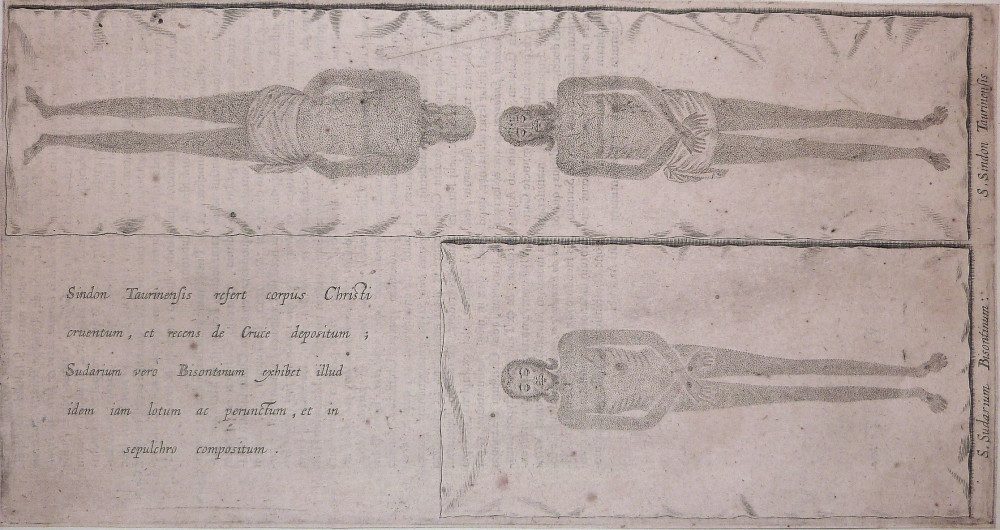 S. Sindon Taurinensis.
Sindon Taurinensis refert corpus Christi
cruentum, et recens de Cruce depositum ;
Sudarium verò Bisontinum exhibet illud
idem iam lotum ac perunctum, et in
sepulchro compositum .
S. Sudarium Bisontinum: